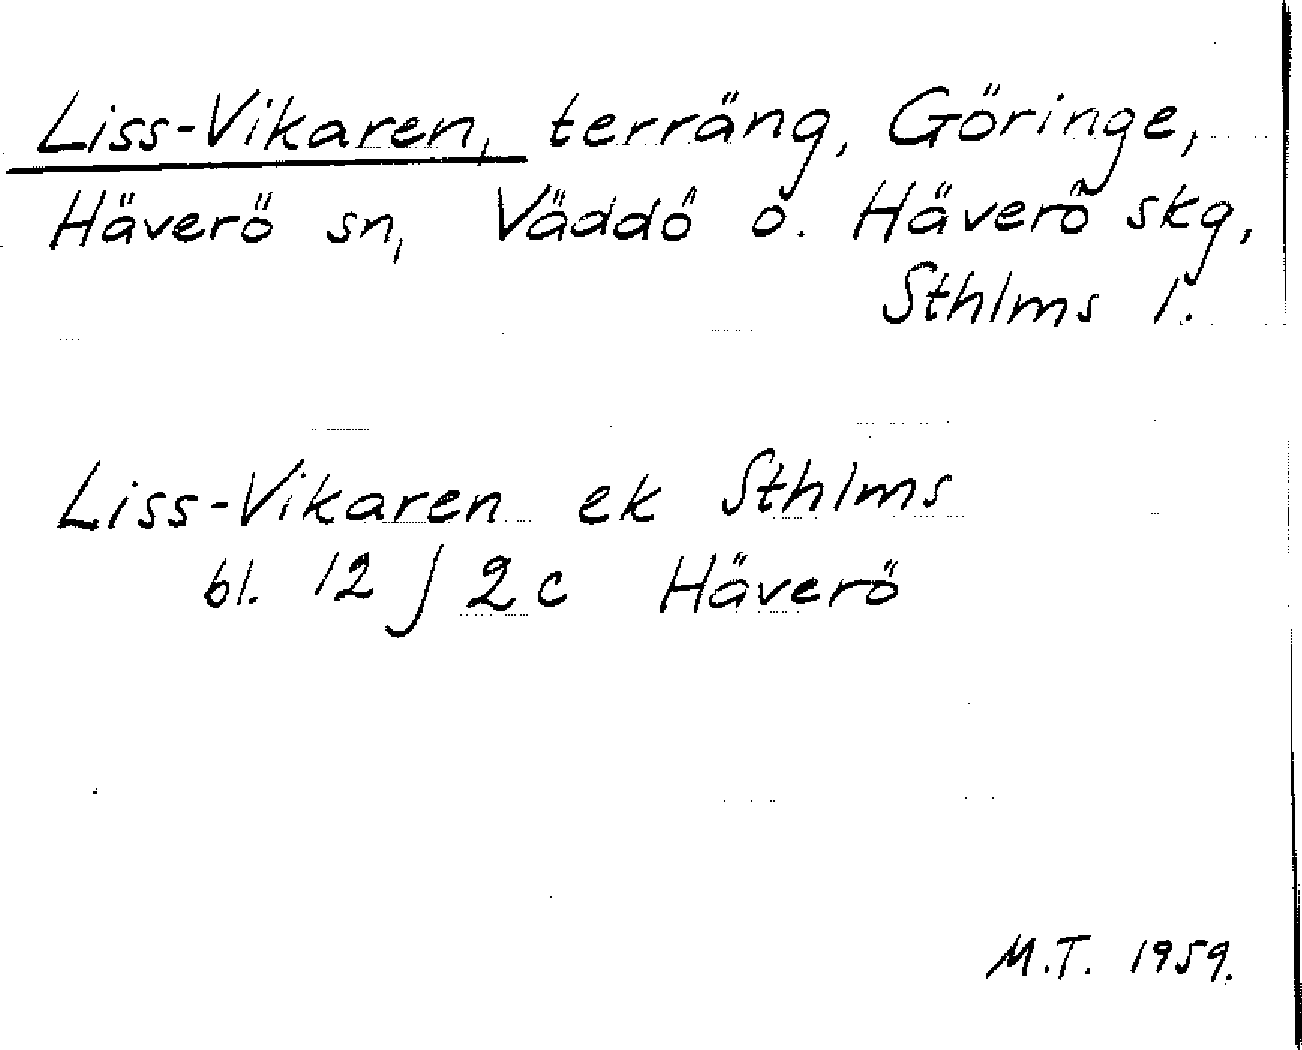 Liss-Vikaren, terräng, Göringe,
Häverö sn, Väddö o. Häverö skg,
Sthlms l.
Liss-Vikaren ek Sthlms
bl. 12 J 2c Häverö
M.T. 1959.